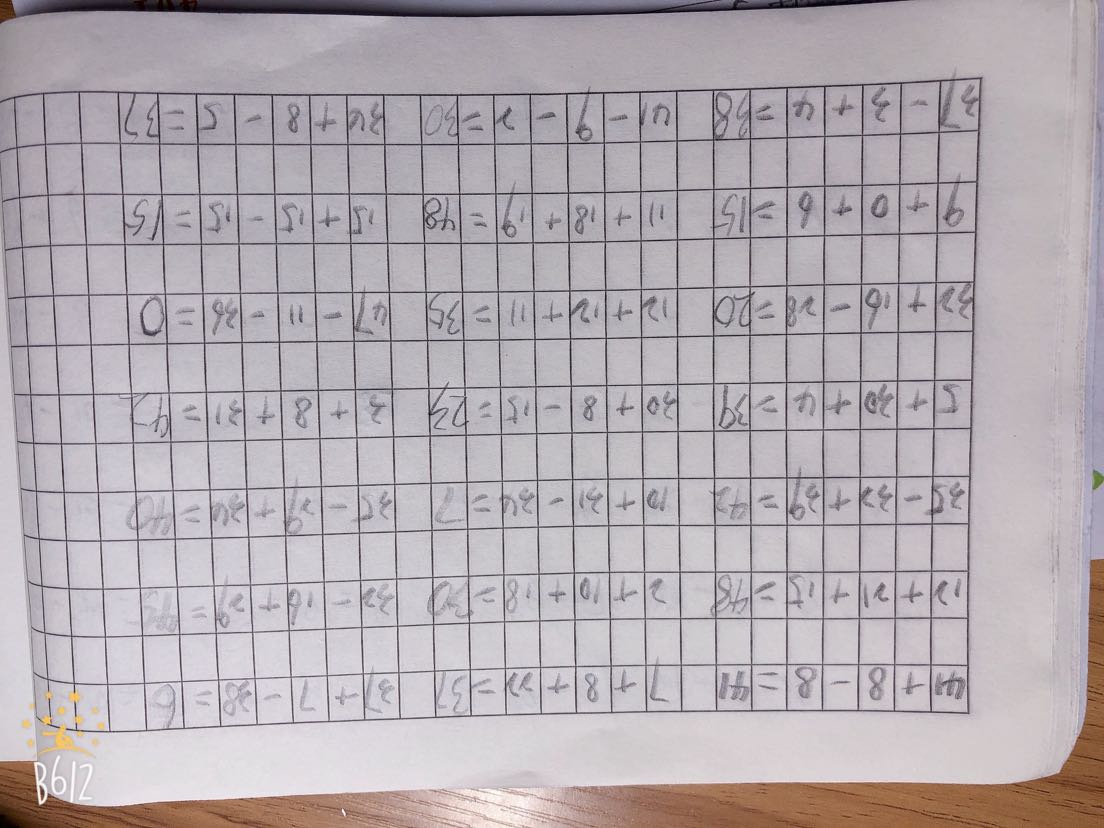 41+8-8=41 7+8+22=37 37+7-38=6
12+21+15=48 2+10+18=30 32-16+29=45
35-32+39=42 10+31-34=7 35-29+34=40
5+30+4=39 30+8-15=23 3+8+31=42
32+16-28=20 12+12+11=35 47-11-36=0
9+0+6=15 11+18+19=48 15+15-15=15
37-3+4=38 41-9-2=30 34+8-5=37
B612